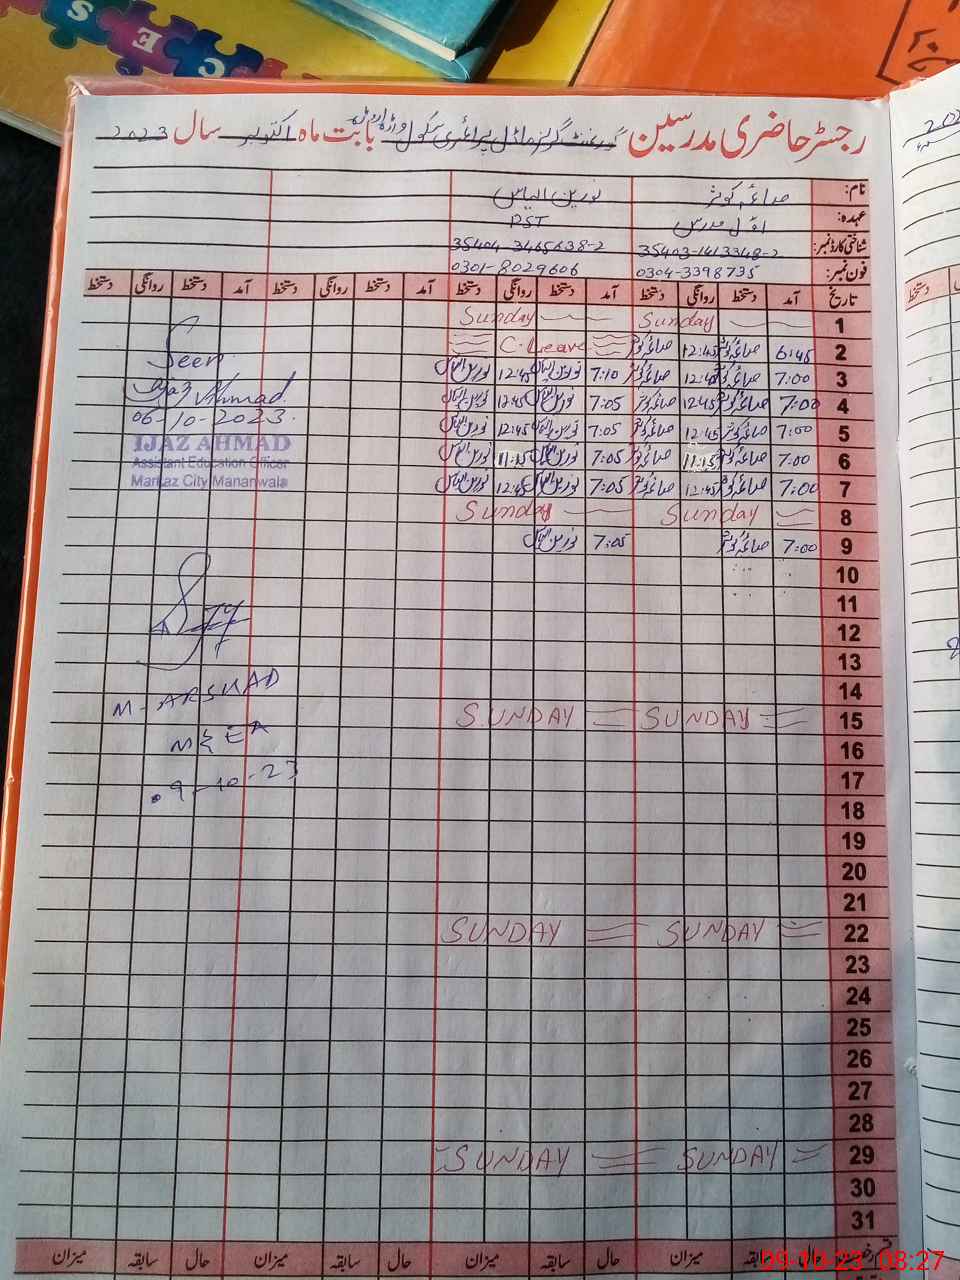 رجسٹر حاضری مدرسین گورنمنٹ گرلز ماڈل پرائمری سکول بابت ماہ اکتوبر سال 2023
نام: صائمہ کوثر نورین الیاس
عہدہ: اول مدرس PST
شناختی کارڈ نمبر: 35403-1413348-2 35404-3465638-2
فون نمبر: 0304-3398735 0301-8029606
تاریخ آمد دستخط روانگی دستخط آمد دستخط روانگی دستخط آمد دستخط روانگی دستخط آمد دستخط روانگی دستخط
1 Sunday Sunday
2 6:45 صائمہ کوثر 12:45 صائمہ کوثر C.Leave
3 7:00 صائمہ کوثر 12:45 صائمہ کوثر 7:10 نورین الیاس 12:45 نورین الیاس
4 7:00 صائمہ کوثر 12:45 صائمہ کوثر 7:05 نورین الیاس 12:45 نورین الیاس
5 7:00 صائمہ کوثر 12:45 صائمہ کوثر 7:05 نورین الیاس 12:45 نورین الیاس
6 7:00 صائمہ کوثر 11:15 صائمہ کوثر 7:05 نورین الیاس 11:15 نورین الیاس
7 7:00 صائمہ کوثر 12:45 صائمہ کوثر 7:05 نورین الیاس 12:45 نورین الیاس
8 Sunday Sunday
9 7:00 صائمہ کوثر 7:05 نورین الیاس
10
11
12
13
14
15 SUNDAY SUNDAY
16
17
18
19
20
21
22 SUNDAY SUNDAY
23
24
25
26
27
28
29 SUNDAY SUNDAY
30
31
حال سابقہ میزان حال سابقہ میزان حال سابقہ میزان حال سابقہ میزان
Seen
Ijaz Ahmad
06-10-2023.
IJAZ AHMAD
Assistant Education Officer
Markaz City Mananwala
M-ARSHAD
MEA
09-10-23
09-10-23 08:27